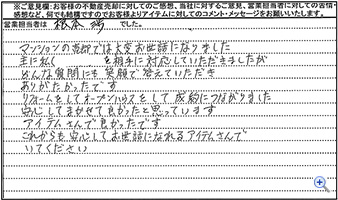 ※ご意見欄:お客様の不動産売却に対してのご感想、当社に対するご意見、営業担当者に対しての苦情・
感想など、何でも結構ですのでお客様よりアイテムに対してのコメント・メッセージをお願いいたします。
営業担当者は 根本 でした。
マンションの売却では大変お世話になりました
主に私 を相手に対応していただきましたが
どんな質問にも笑顔で答えていただき
ありがたかったです
リフォームをしてオープンハウスをして成約につながりました
安心してまかせて良かったと思っています
アイテムさんで良かったです
これからも安心してお世話になれるアイテムさんで
いてください